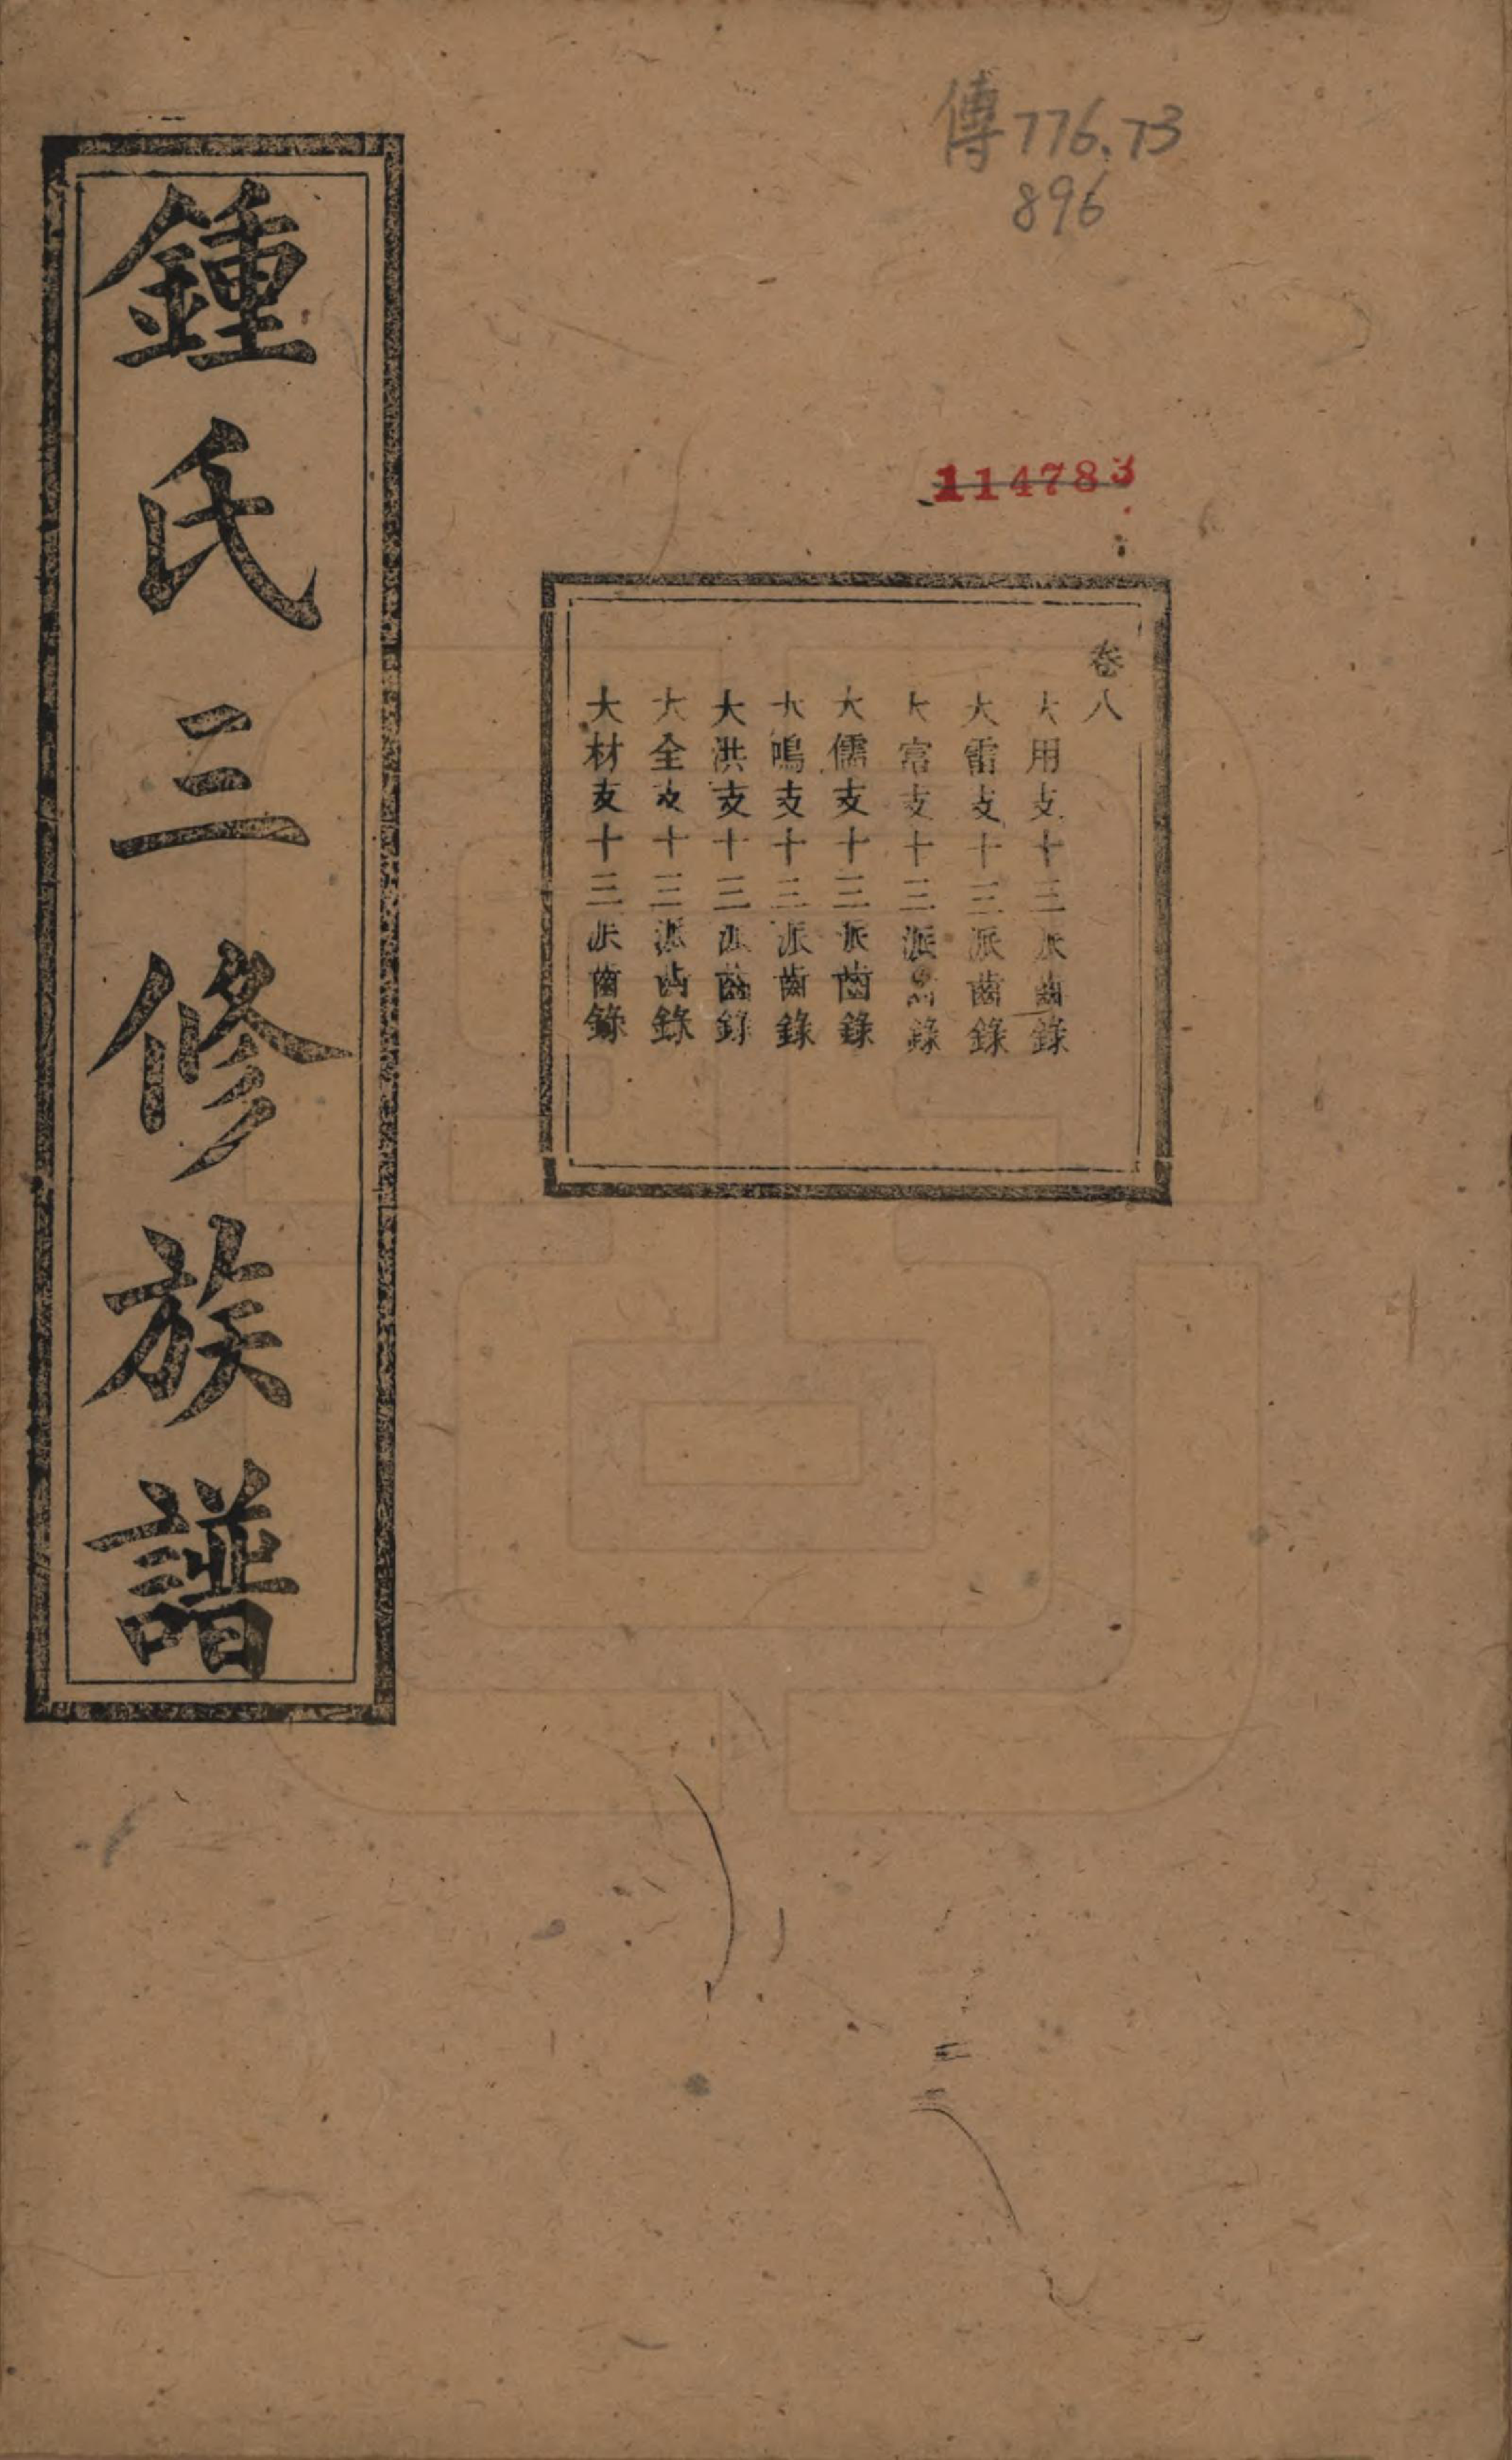 傳776.73
896
114783
卷八
大用支十三派齒錄
大雷支十三派齒錄
大常支十三派齒錄
大儒支十三派齒錄
大鳴支十三派齒錄
大洪支十三派齒錄
大全支十三派齒錄
大材支十三派齒錄
鍾氏三修族譜